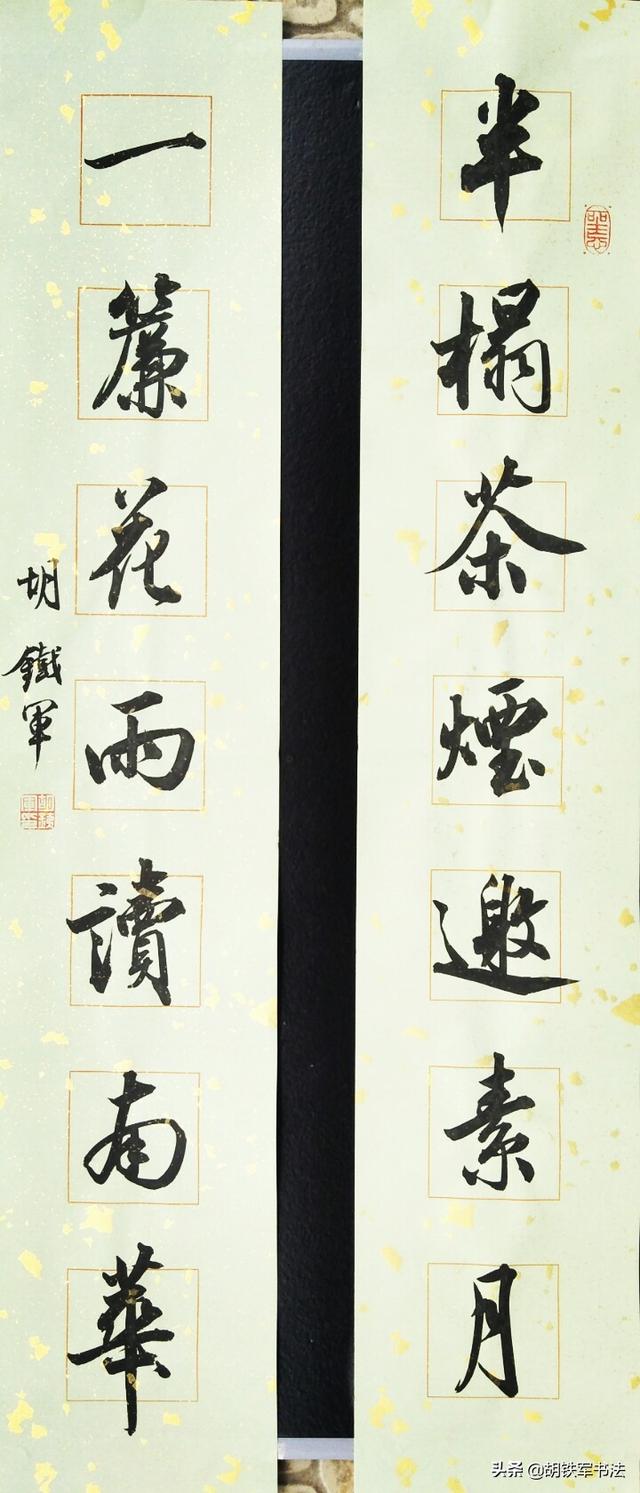 半榻茶煙邀素月
一簾花雨讀南華
胡鐵軍
头条 @胡铁军书法